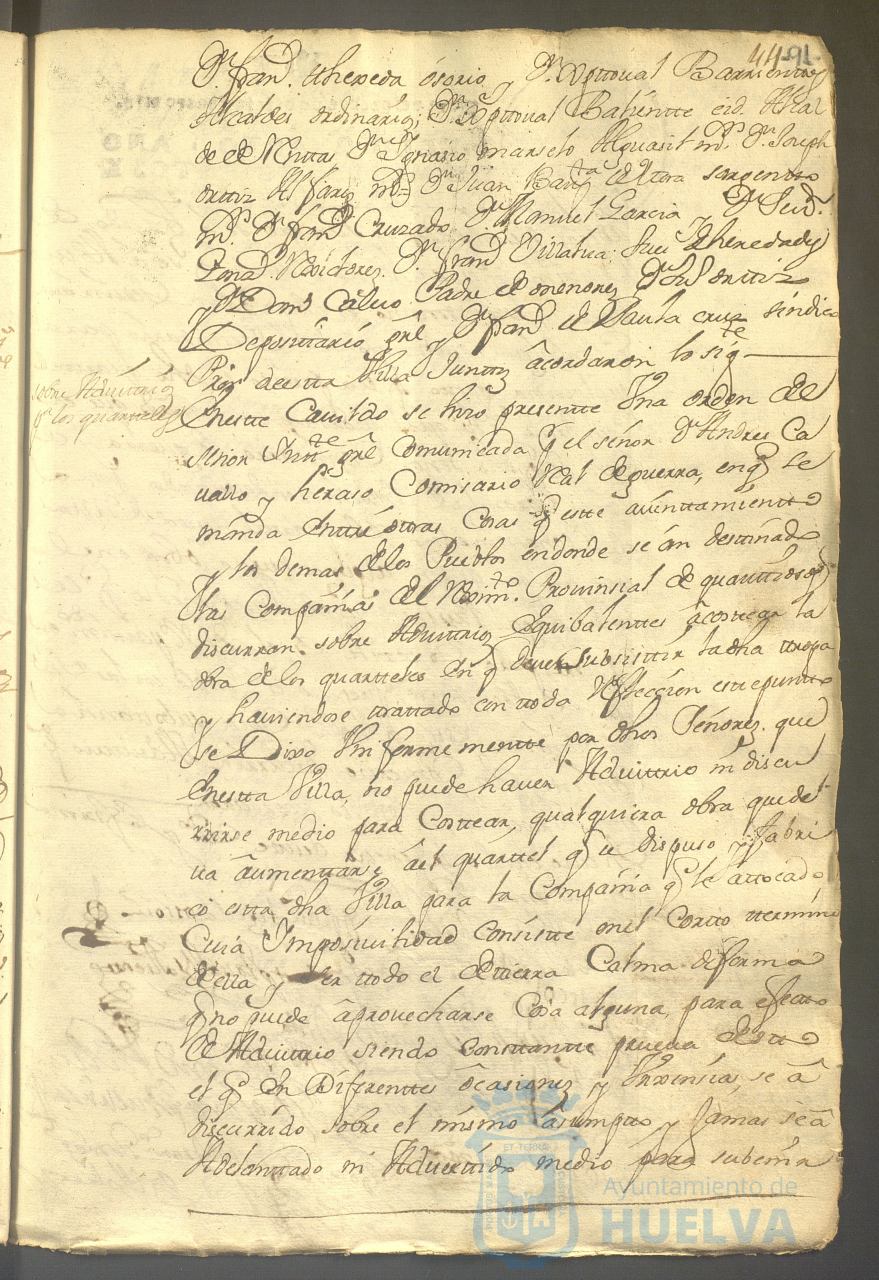 44-91-
Dn. Franco. de heredia osorio y Dn. Xpttoval Barrientos
Alcaldes ordinarios; Dn. Xpttoval Balientte
de de Millttas Dn. Ignasio marselo Alguasil mr. Dn. Joseph
orttiz Alfarez mr. Dn. Juan Bauta. de
mr. Dn. Franco. Cruzado, Dn. Manuel Garcia y Dn.
Rexidores, Dn. Franco. Villalva, Juez de heredades
y Dn. Domo. Calvo Padre de menores Dn. orttiz
Deposittario grl. y Dn. Franco. de Santa cruz sindico
Pror. de estta Villa Junttos acordaron lo sigte.
sobre Advittrio
pa. los quartteles
En estte Cavildo se hizo presentte Una orden del
señor Intte. grl. comunicada pr. el señor Dn. Andres Ca
vallo y heraso Comisario Real de guerra, en qe. se
manda enttre ottras cosas qe. estte aiunttamientto
y los demas de los Pueblos en donde se án desttinado
las Compañias del Reximto. Provinsial de quanttiosos
discurran sobre Advittrios Equibalenttes á costear la
obra de los quartteles En qe. deve subsisttir la dha ttropa
y haviendose ttrattado con ttoda Reflección estte puntto
se Dixo Uniformementte por dhos Señores que
En estta Villa, no puede haver Advittrio ni discu
rrirse medio para Costtear, qualquiera obra que de
va aumenttarse ál quarttel qe. se dispuso y fabri
co estta dha Villa para la Compañia qe. le á ttocado
Cuia Imposivilidad consistte en el Cortto ttermino
de ella y ser ttodo el de tierra Calma de forma
qe. no puede aprovecharse Cosa alguna, para efectto
de Advittrio siendo consttantte prueva de estto
el qe. En Diferenttes ocasiones y Urxensias se á
discurrido sobre el mismo asumptto y jamas se á
Adelanttado ni Adverttido medio para
Ayuntamiento de
HUELVA